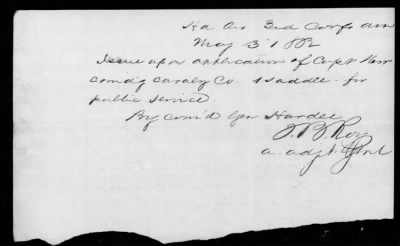 Hd Qrs 3rd Corps Army
May 3 1862
Issue upon application of Capt
comd'g Cavalry Co. 1 saddle for
public service
By com'd Gen Hardee
T. B. Roy
a. adjt. Genl